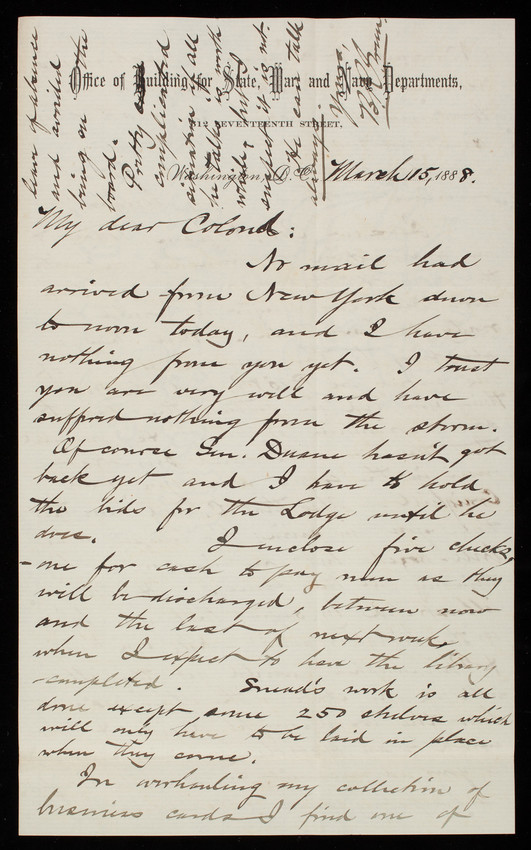 Office of Building for State, War and Navy Departments,
SEVENTEENTH STREET,
Washington, D.C. March 15, 1888.
My dear Colonel:
No mail had
arrived from New York down
to noon today, and I have
nothing from you yet. I trust
you are very well and have
suffered nothing from the storm.
Of course Gen. Duane hasn't got
back yet and I have to hold
the bids for the Lodge until he
does. I enclose five checks,
- one for cash to pay men as they
will be discharged, between now
and the last of next week,
when I expect to have the library
completed. Snead's work is all
done except some 250 shelves which
will only have to be laid in place
when they come.
In overhauling my collection of
business cards I find one of
leave of absence
and avoided
being on the
board.
Pretty
complicated
situation if all
he talks is worth
while, but I
suspect it is not.
He can talk
always.
Yours,